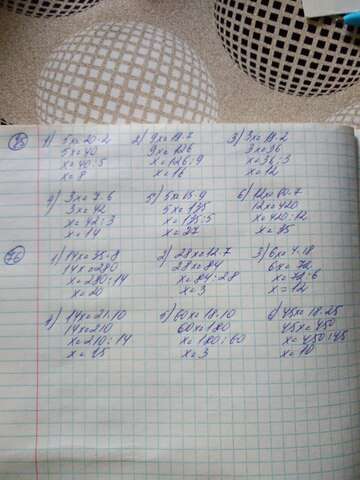 75 1) 5x=20·2 2) 9x=18·7 3) 3x=18·2
5x=40 9x=126 3x=36
x=40:5 x=126:9 x=36:3
x=8 x=14 x=12
4) 3x=7·6 5) 5x=15·9 6) 12x=60·7
3x=42 5x=135 12x=420
x=42:3 x=135:5 x=420:12
x=14 x=27 x=35
76 1) 14x=35·8 2) 28x=12·7 3) 6x=4·18
14x=280 28x=84 6x=72
x=280:14 x=84:28 x=72:6
x=20 x=3 x=12
4) 14x=21·10 5) 60x=18·10 6) 45x=18·25
14x=210 60x=180 45x=450
x=210:14 x=180:60 x=450:45
x=15 x=3 x=10